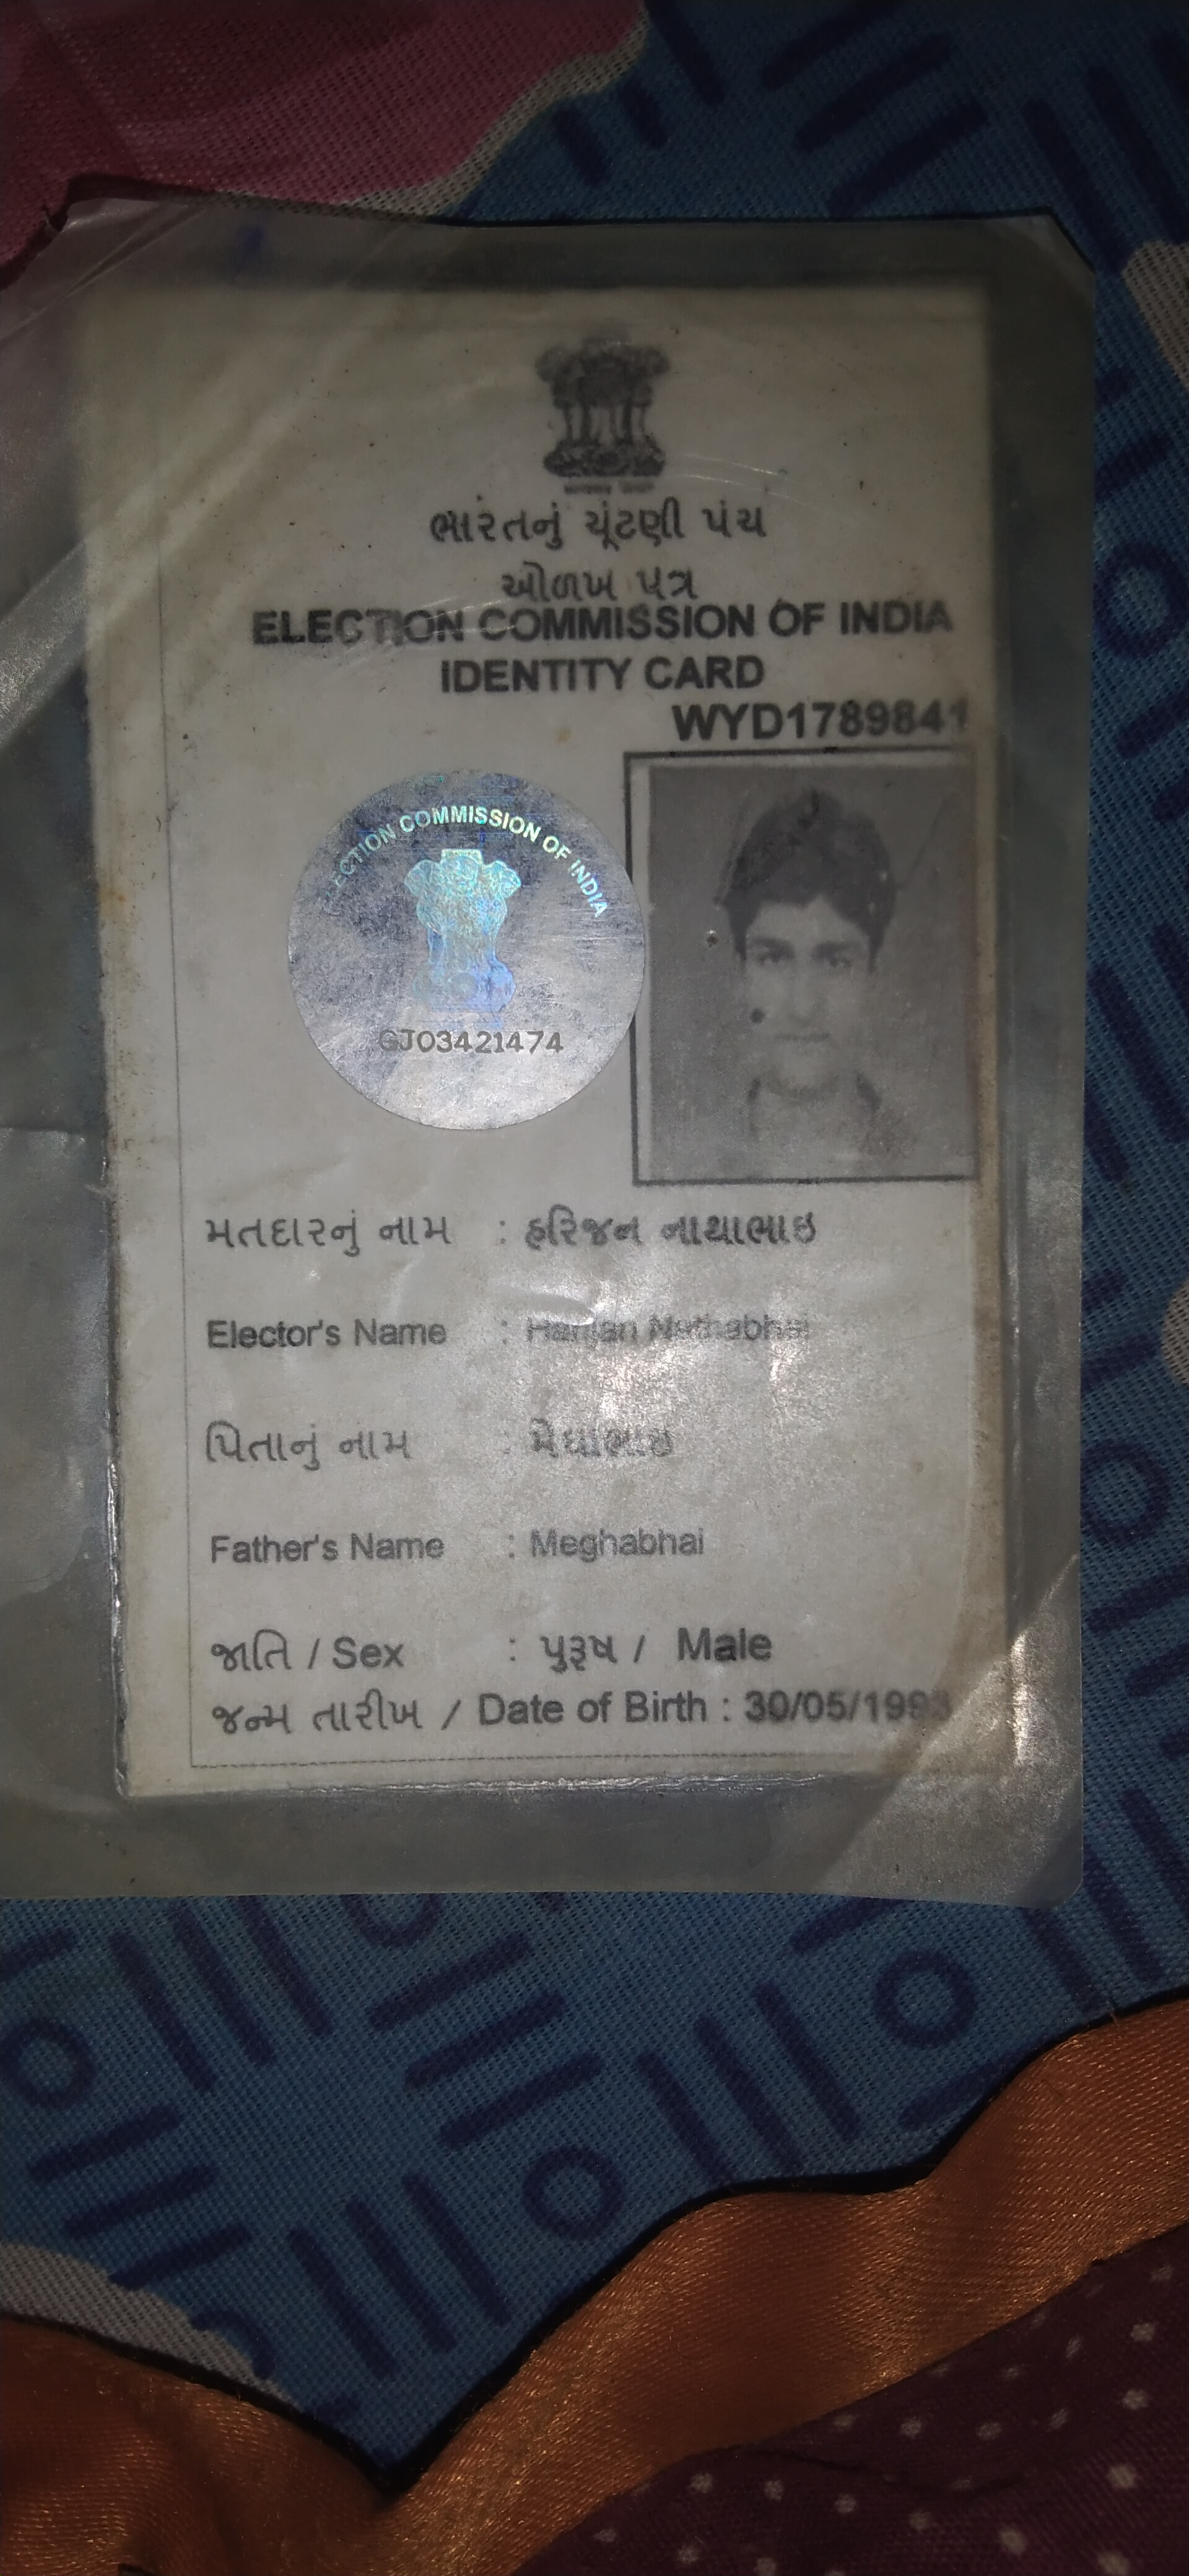 ભારતનું ચૂંટણી પંચ
ઓળખ પત્ર
ELECTION COMMISSION OF INDIA
IDENTITY CARD
WYD1789841
ELECTION COMMISSION OF INDIA
GJ03421474
મતદારનું નામ : હરિજન નાથાભાઇ
Elector's Name : Harijan Nathabhai
પિતાનું નામ : મેઘાભાઇ
Father's Name : Meghabhai
જાતિ / Sex : પુરૂષ / Male
જન્મ તારીખ / Date of Birth : 30/05/1993